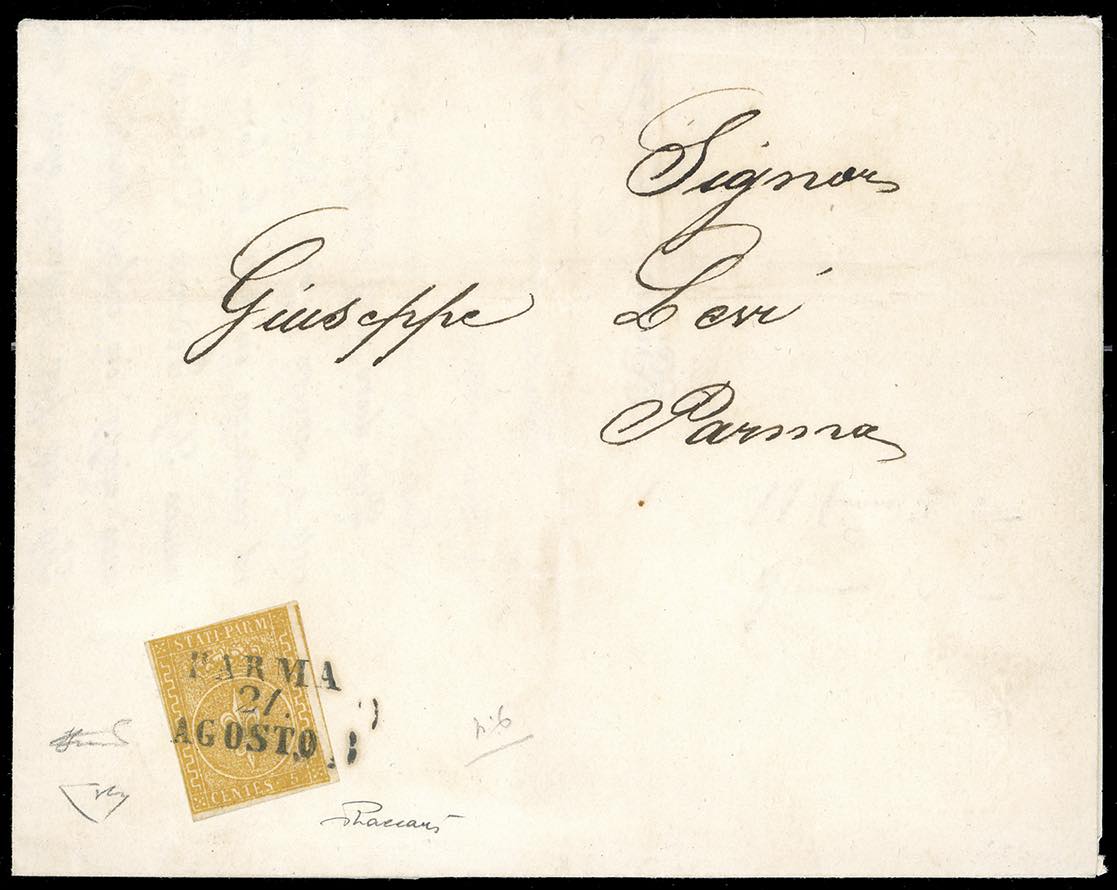 Signor
Giuseppe Levi
Parma
STATI·PARM.
PARMA
21.
AGOSTO
CENTES. 5